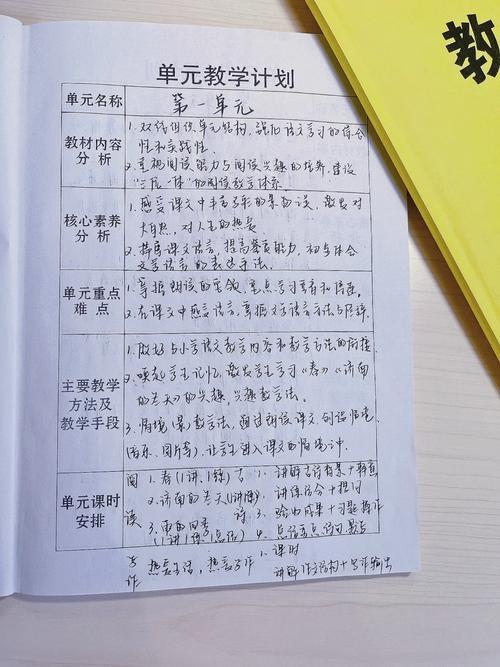 教
单元教学计划
单元名称
第一单元
教材内容
分析
1. 双线组织单元结构，强化语文学习的综合
性和实践性。
2. 重视阅读能力与阅读兴趣的培养，建设
"三位一体"的阅读教学体系。
核心素养
分析
1. 感受课文中丰富多彩的景物，激发对
大自然，对人生的热爱
2. 揣摩课文语言，提高鉴赏能力，初步体会
文学语言的表达手法。
单元重点
难点
1. 掌握朗读的要领，重点学习重音和停连。
2. 在课文中感受语言，掌握文学语言方法与
主要教学
方法及
教学手段
1. 做好与小学语文教学内容和教学方法的衔接
2. 唤起学生记忆，激发学生学习《春》《济南
的冬天》的兴趣，兴趣教学法。
3. 情境（景）教学法，通过朗读课文，创设情境
音乐、图片等），让学生进入课文的情境中。
单元课时
安排
阅
读
1. 春（1讲，1练）
2. 济南的冬天（1讲1练）
3. 雨的四季
古
诗
1. 讲解古诗背景+释意
2. 讲练结合+提问
3.
4.
写
作
热爱生活，热爱写作
1课时
讲解作文结构+写作输出